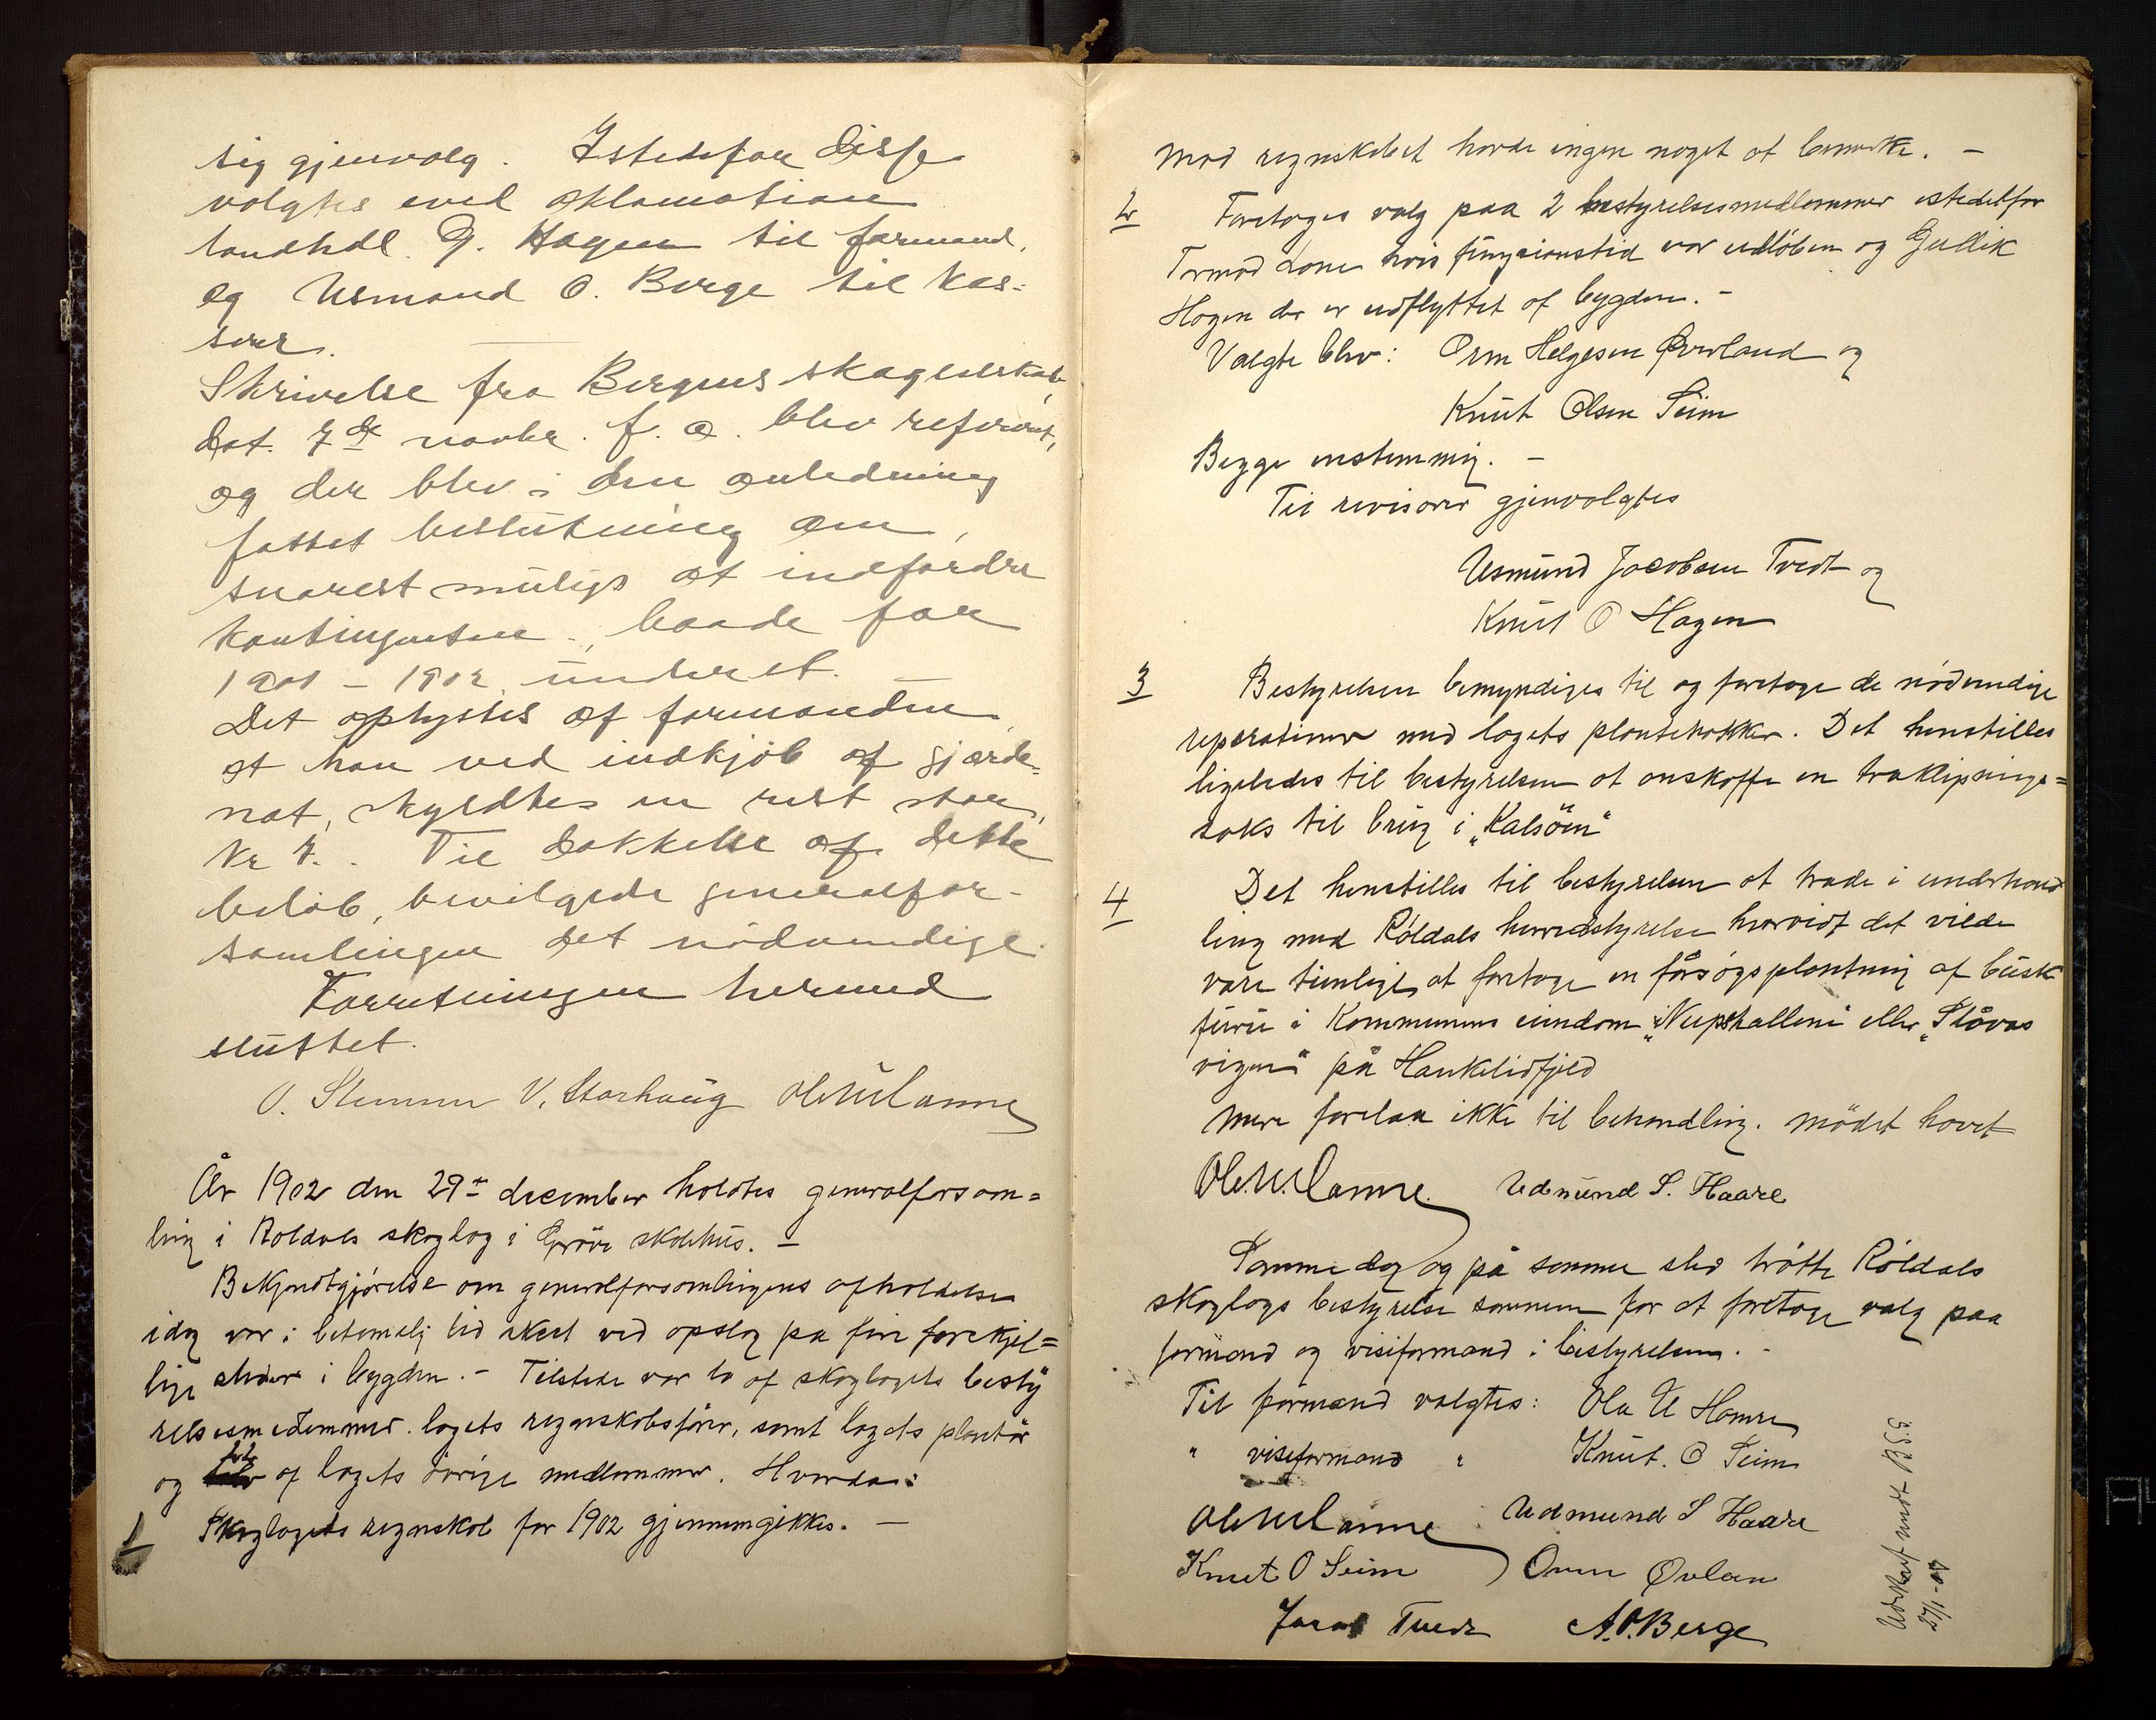 sig gjenvalg. Istedefor disse
valgtes ved aklamation
landhdl. G. Hagen til formand,
og Asmund O. Berge til kas-
serer.
Skrivelse fra Bergens skogselskab
dat. 7de novbr. f. a. blev referert,
og der blev i den anledning
fattet beslutning om,
snarest muligt at indfordre
kontingenten, baade for
1901 - 1902 underet.
Det oplystes af formanden
at han ved indkjøb af gjærde-
nat, skyldtes en rest stor
Kr 7. Til dækkelse af dette
beløb, bevilgede generalfor-
samlingen det nødvendige.
Forretningen hermed
sluttet.
O. Stemmer V. Storhaug Ole U Hamre
År 1902 den 29de december holdtes generalforsam=
ling i Røldals skoglag i Grøve skolehus. —
Bekjendtgjørelse om generalforsamlingens afholdelse
idag var i betimelig tid skeet ved opslag pa fire forskjel=
lige steder i bygden. - Tilstede var to af skoglagets besty
relsesmedlemmer. lagets regnskabsfører, samt lagets plantør
og af lagets øvrige medlemmer. Hvorda:
1 Skoglagets regnskab for 1902 gjennemgikkes. —
Mod regnskabet havde ingen noget at bemerke. —
2 Foretoges valg paa 2 bestyrelsesmedlemmer istedetfor
Tormod Lone hvis fungsionstid var udløben og Gullik
Hagen der er udflyttet af bygden. -
Valgte blev: Orm Helgesen Øverland og
Knut Olsen Seim
Begge enstemmig. —
Til revisorer gjenvalgtes
Asmund Jacobsen Tvedt og
Knut O Hagen
3 Bestyrelsen bemyndiges til og foretage de nødvendige
reperationer med lagets plantehakker. Det henstilles
ligeledes til bestyrelsen at anskaffe en træklipnings=
saks til brug i „Kalsöen"
4 Det henstilles til bestyrelsen at træde i underhand
ling med Røldals herredstyrelse hvorvidt det vilde
være timeligt at foretage en försøgsplantning af busk
furu i Kommunens eiendom „Nupshallene eller „Ståvas
vigen" på Haukelidfjeld
Mere forelaa ikke til behandling. Mødet hævet
Ole. U. Hamre. Admund S. Haare
Samme dag og på samme sted trådte Røldals
skoglags bestyrelse sammen for at foretage valg paa
formand og viseformand i bestyrelsen. -
Til formand valgtes: Ola U Hamre
" viseformand " Knut. O Seim
Ole U Hamre Admund S Haare
Knut O Seim Orm Øvland
Jacob Tvedt A. O. Berge
Udskrif sendt B.S.S.
27/1-04